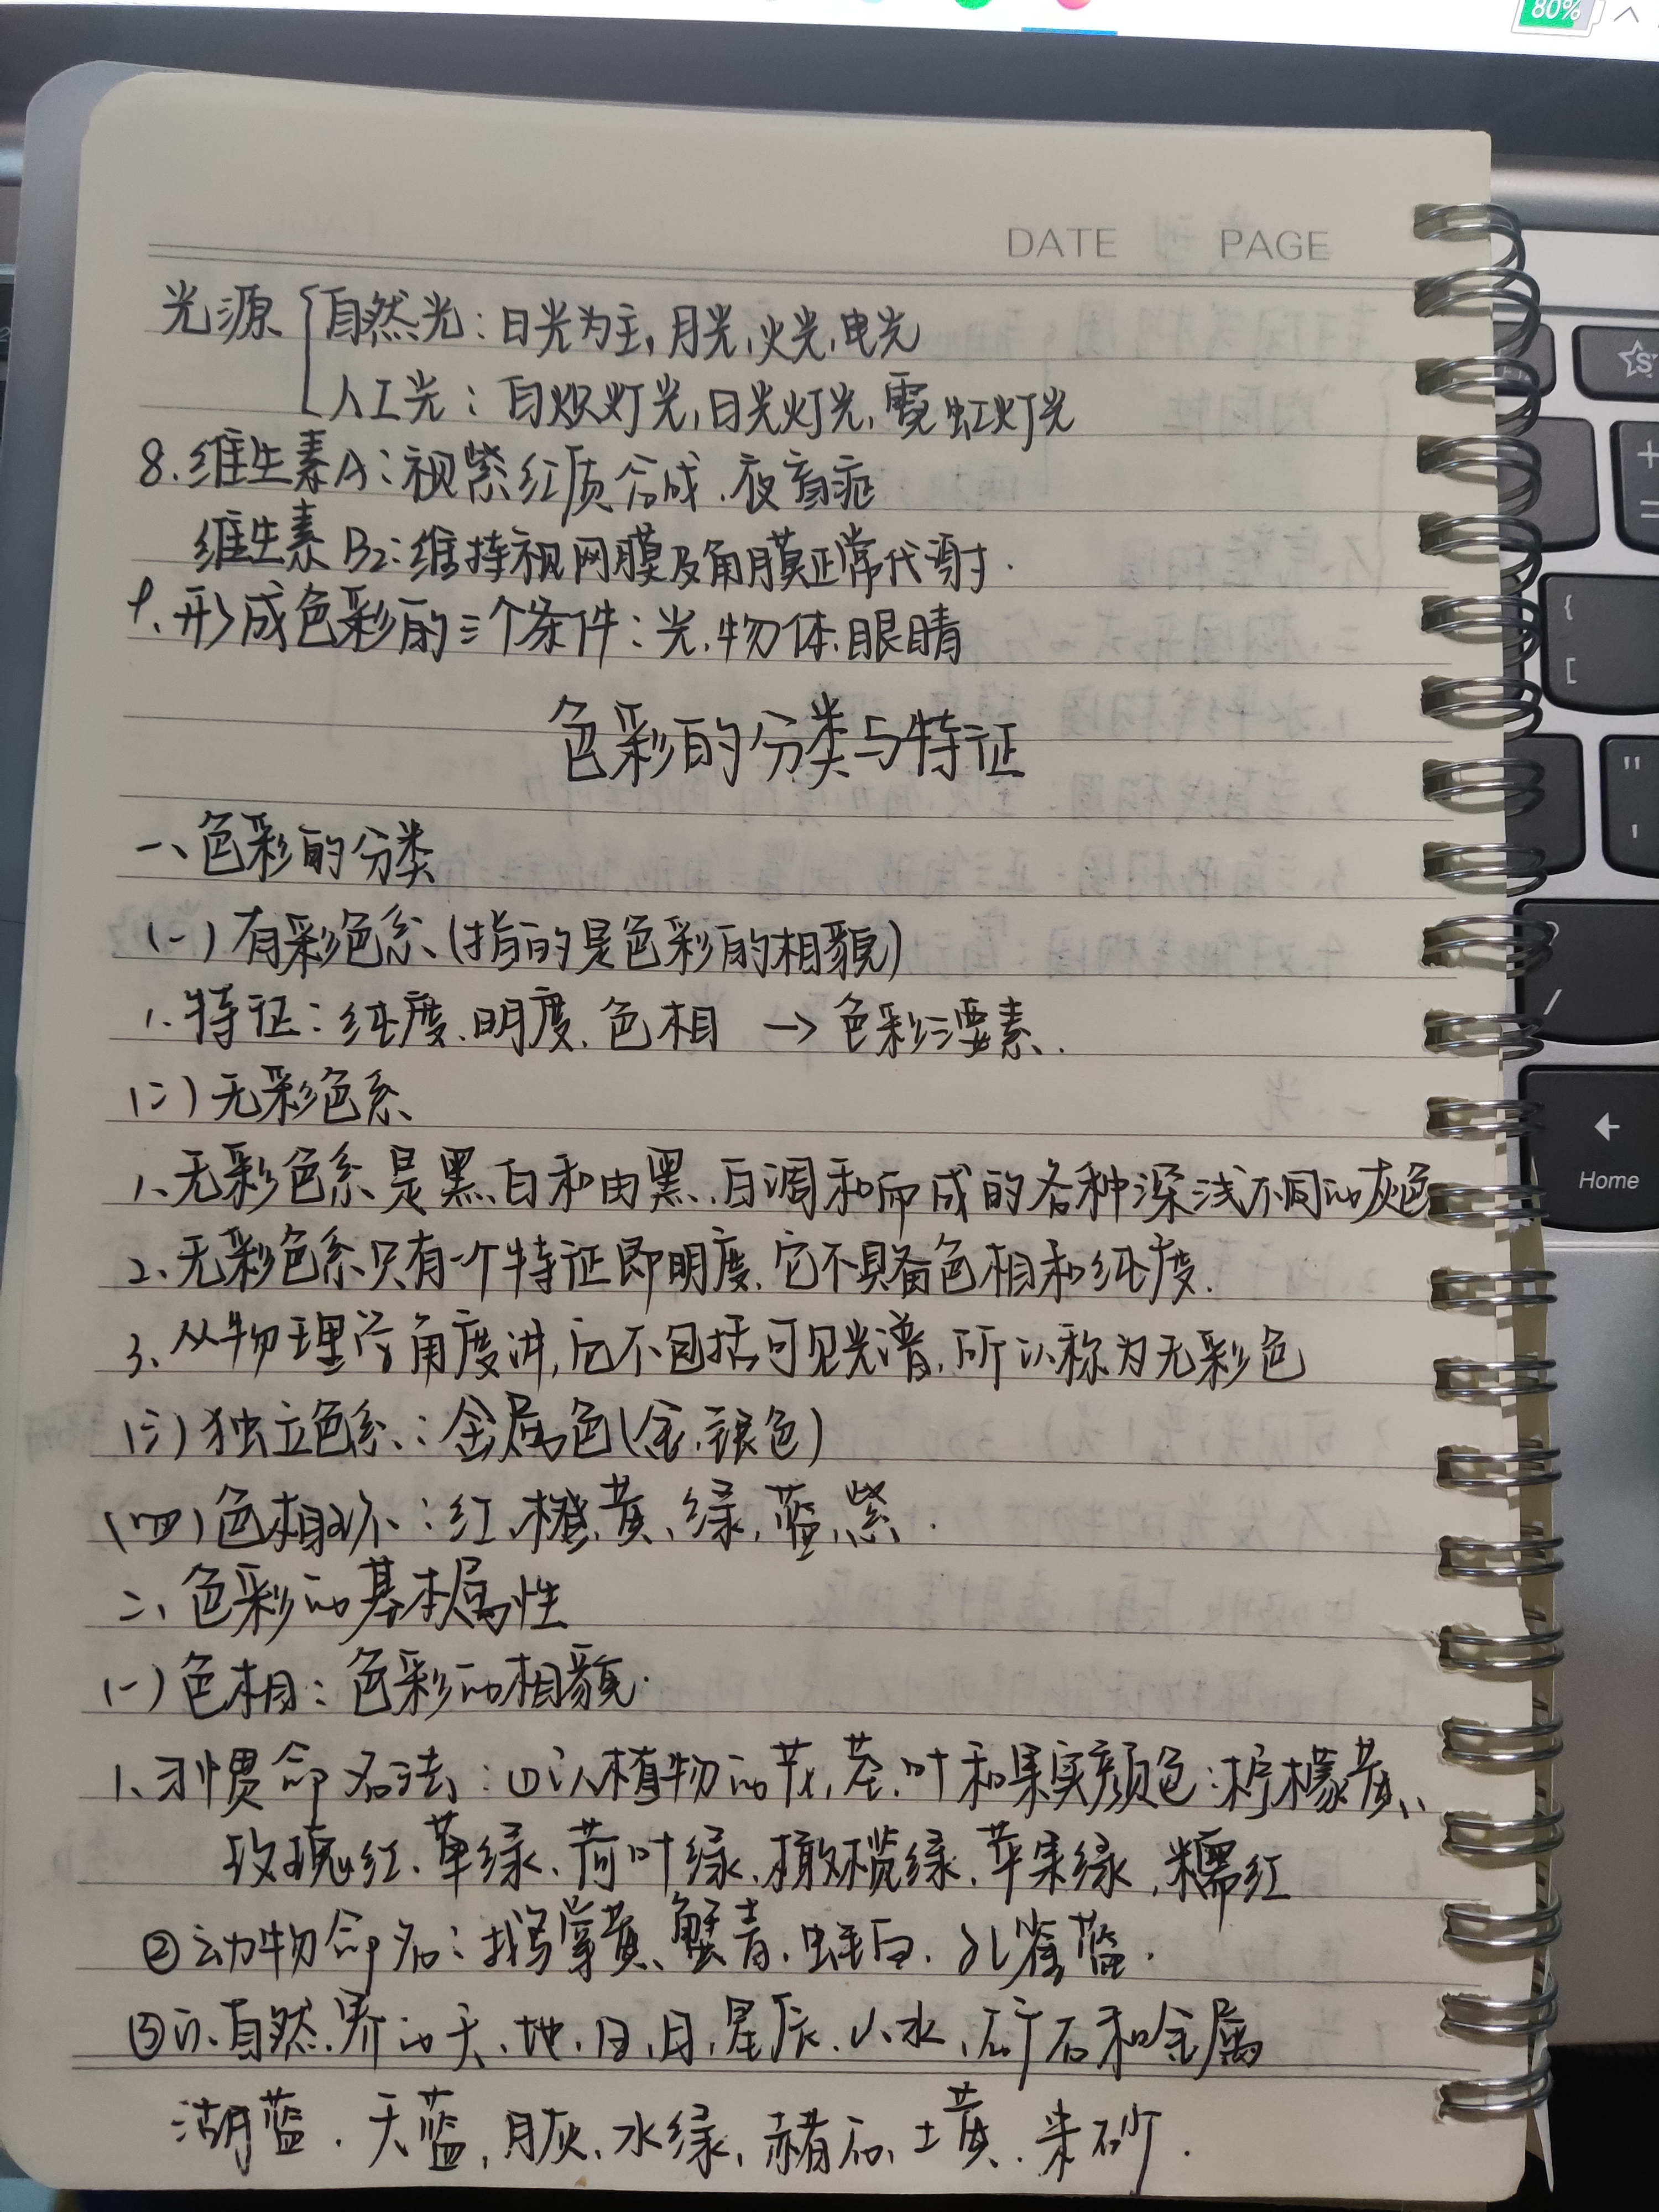 80%
DATE PAGE
光源 自然光：日光为主，月光、火光、电光
人工光：白炽灯光，日光灯光，霓虹灯光
8.维生素A：视紫红质合成.夜盲症
维生素B2：维持视网膜及角膜正常代谢.
9.形成色彩的三个条件：光.物体.眼睛
色彩的分类与特征
一、色彩的分类
(一)有彩色系(指的是色彩的相貌)
1.特征：纯度、明度.色相 → 色彩三要素.
(二)无彩色系
1、无彩色系是黑、白和由黑、白调和而成的各种深浅不同的灰色
2、无彩色系只有一个特征即明度，它不具备色相和纯度.
3、从物理学角度讲，它不包括可见光谱，所以称为无彩色
(三)独立色系：金属色(金、银色)
(四)色相环：红、橙、黄、绿、蓝、紫.
二、色彩的基本属性
(一)色相：色彩的相貌.
1、习惯命名法：①以植物的花，茎.叶和果实颜色：柠檬黄、
玫瑰红、草绿、荷叶绿、橄榄绿、苹果绿，糯红
②动物命名：鹅掌黄、蟹青.蚌白.孔雀蓝.
③以自然界的天、地、日、月，星辰.山、水、矿石和金属
湖蓝.天蓝，月灰、水绿，赭石、土黄.朱砂.
S
+
=
{
[
"
'
/
Home